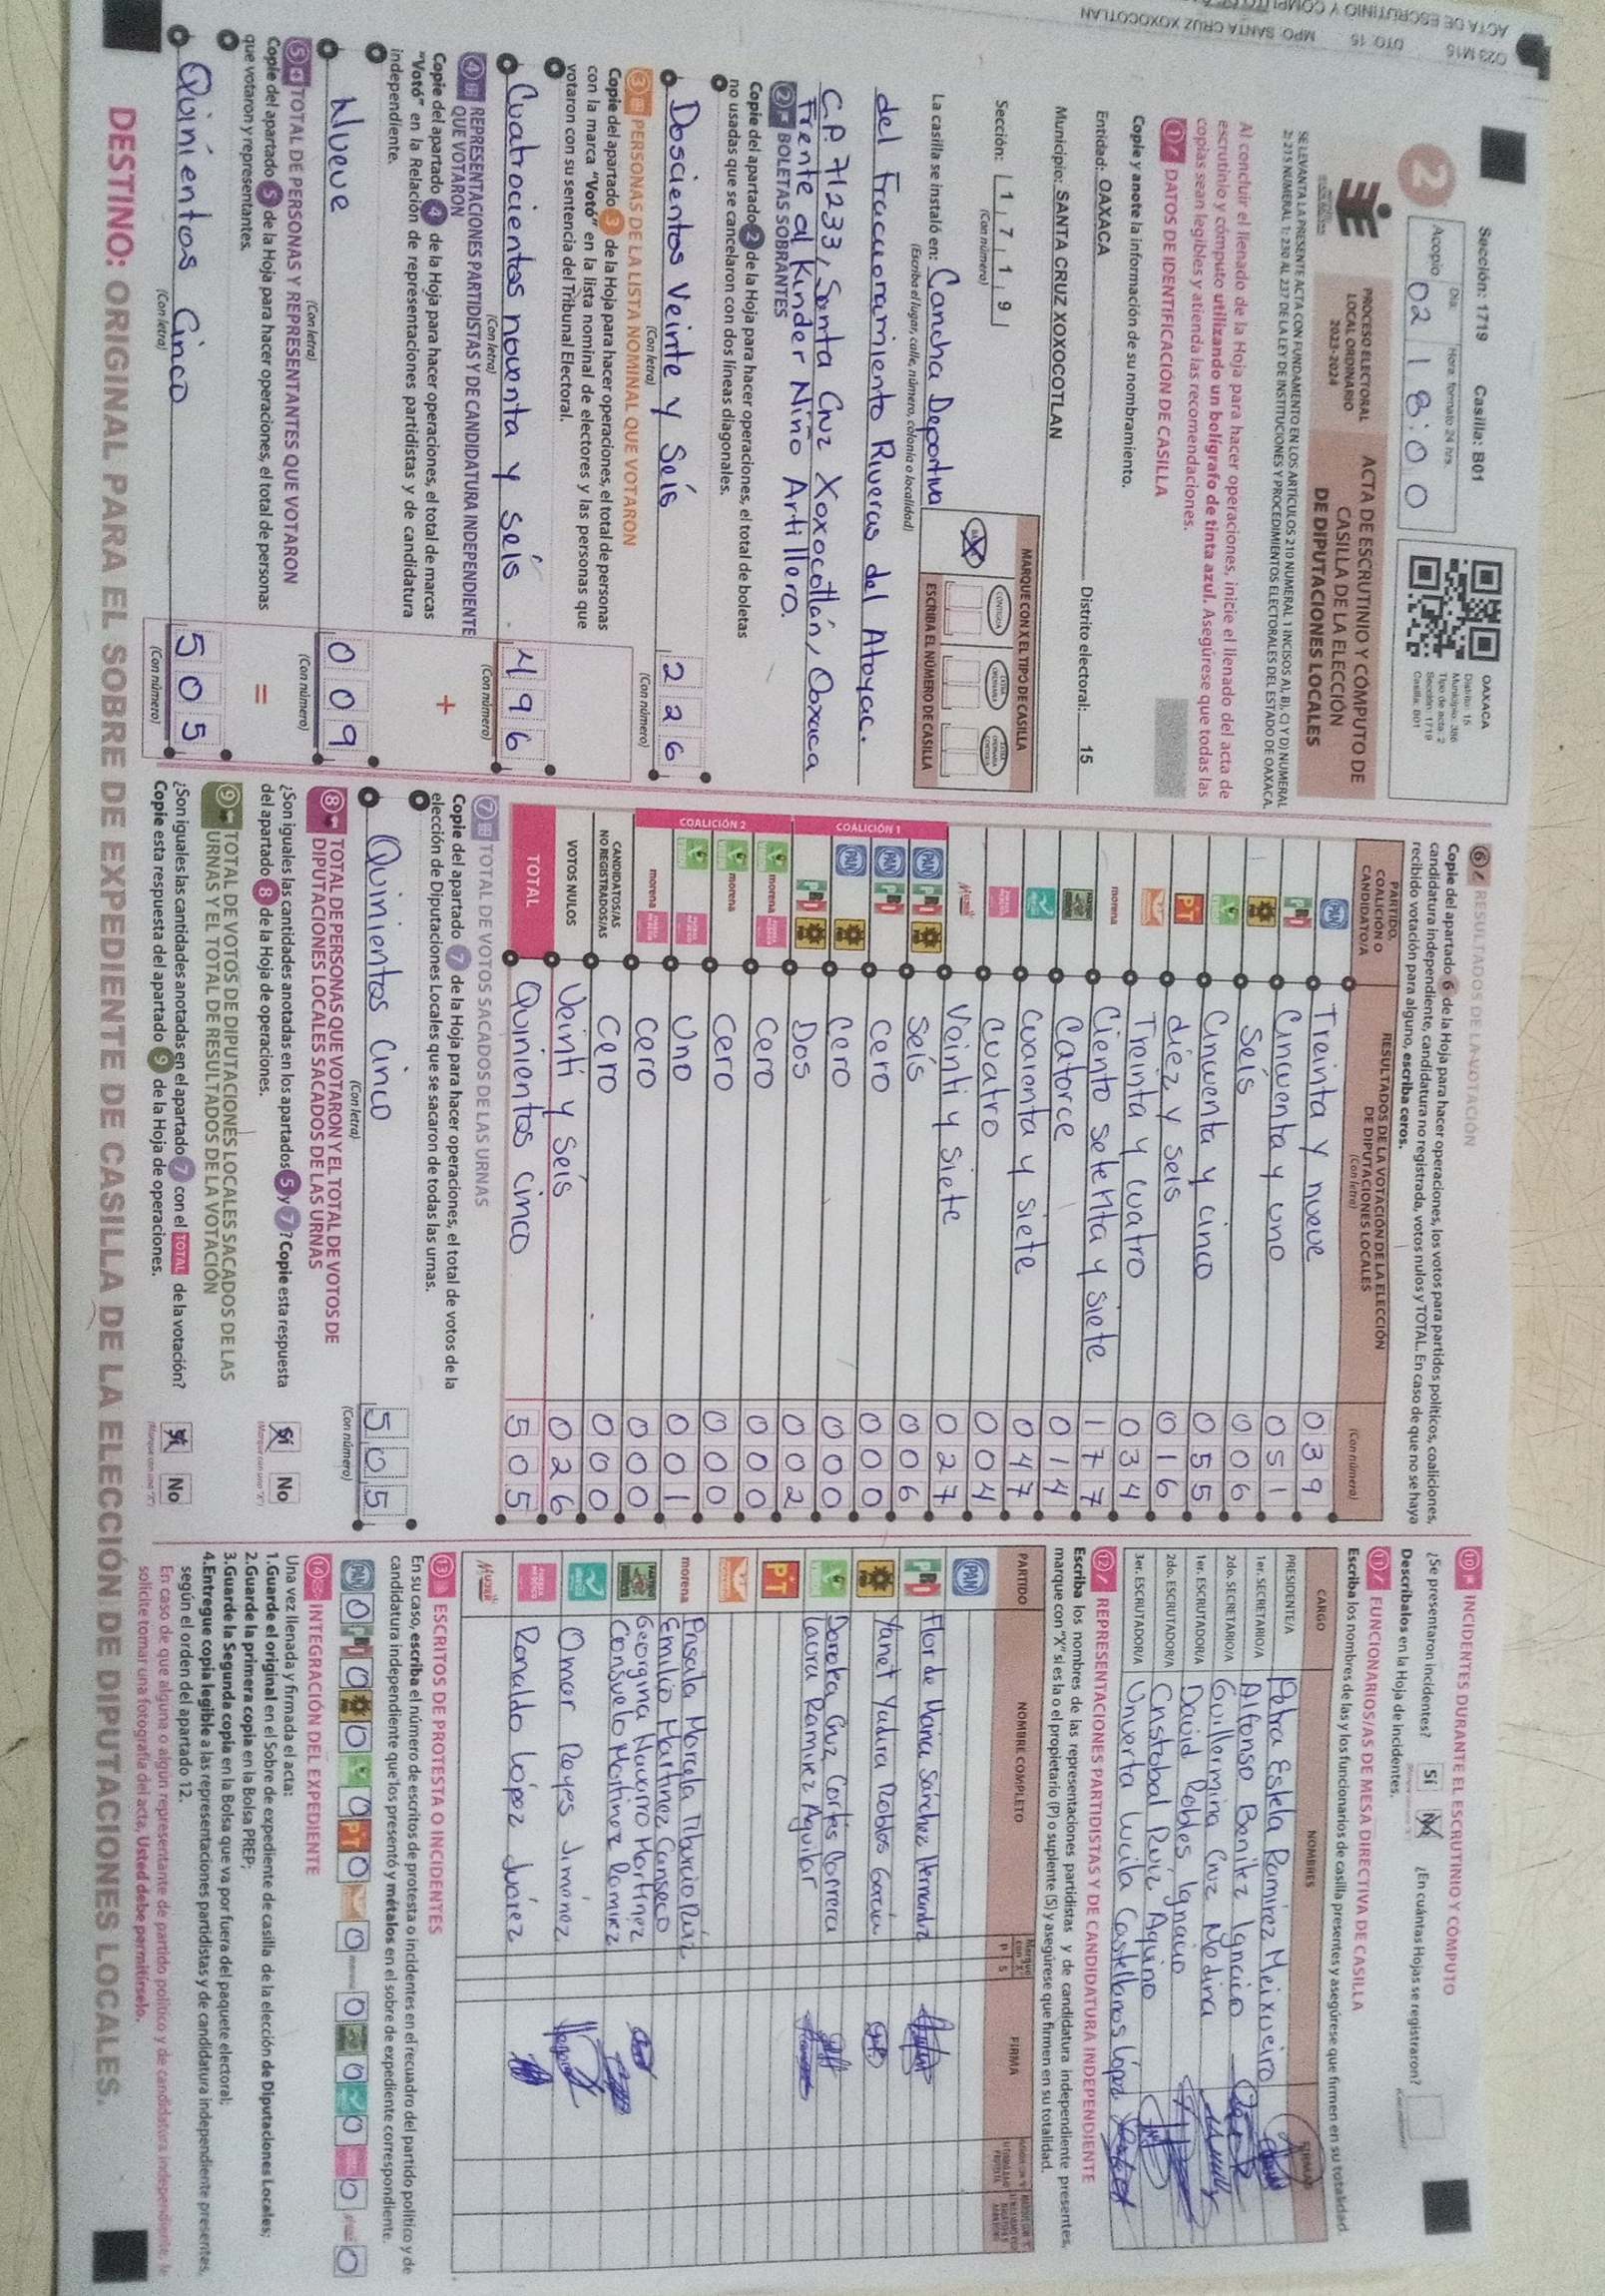 Sección: 1719 Casilla: B01
2
Día: Hora: formato 24 hrs.
Acopio 02 18:00
OAXACA
Distrito: 15
Municipio: 386
Tipo de acta: 2
Sección: 1719
Casilla: B01
PROCESO ELECTORAL
LOCAL ORDINARIO
2023-2024
ACTA DE ESCRUTINIO Y CÓMPUTO DE
CASILLA DE LA ELECCIÓN
DE DIPUTACIONES LOCALES
SE LEVANTA LA PRESENTE ACTA CON FUNDAMENTO EN LOS ARTÍCULOS 210 NUMERAL 1 INCISOS A), B), C) Y D) NUMERAL
2; 215 NUMERAL 1; 230 AL 237 DE LA LEY DE INSTITUCIONES Y PROCEDIMIENTOS ELECTORALES DEL ESTADO DE OAXACA.
Al concluir el llenado de la Hoja para hacer operaciones, inicie el llenado del acta de
escrutinio y cómputo utilizando un bolígrafo de tinta azul. Asegúrese que todas las
copias sean legibles y atienda las recomendaciones.
1 DATOS DE IDENTIFICACIÓN DE CASILLA
Copie y anote la información de su nombramiento.
Entidad: OAXACA Distrito electoral: 15
Municipio: SANTA CRUZ XOXOCOTLAN
Sección: 1 7 1 9
(Con número)
MARQUE CON X EL TIPO DE CASILLA
ESCRIBA EL NÚMERO DE CASILLA
La casilla se instaló en: Cancha Deportiva
(Escriba el lugar, calle, número, colonia o localidad)
del Fraccoramiento Riveras del Atoyac.
C.P. 71233, Santa Cruz Xoxocotlán, Oaxaca
Frente al Kinder Niño Artillero.
2 BOLETAS SOBRANTES
Copie del apartado 2 de la Hoja para hacer operaciones, el total de boletas
no usadas que se cancelaron con dos líneas diagonales.
Doscientos Veinte y Seís 2 2 6
(Con letra) (Con número)
3 PERSONAS DE LA LISTA NOMINAL QUE VOTARON
Copie del apartado 3 de la Hoja para hacer operaciones, el total de personas
con la marca "Votó" en la lista nominal de electores y las personas que
votaron con su sentencia del Tribunal Electoral.
Cuatrocientos noventa y seís 4 9 6
(Con letra) (Con número)
4 REPRESENTACIONES PARTIDISTAS Y DE CANDIDATURA INDEPENDIENTE
QUE VOTARON +
Copie del apartado 4 de la Hoja para hacer operaciones, el total de marcas
"Votó" en la Relación de representaciones partidistas y de candidatura
independiente.
Nueve 0 0 9
(Con letra) (Con número)
5 TOTAL DE PERSONAS Y REPRESENTANTES QUE VOTARON
Copie del apartado 5 de la Hoja para hacer operaciones, el total de personas =
que votaron y representantes.
Quinientos Cinco 5 0 5
(Con letra) (Con número)
6 RESULTADOS DE LA VOTACIÓN
Copie del apartado 6 de la Hoja para hacer operaciones, los votos para partidos políticos, coaliciones,
candidatura independiente, candidatura no registrada, votos nulos y TOTAL. En caso de que no se haya
recibido votación para alguno, escriba ceros.
PARTIDO, COALICIÓN O CANDIDATO/A
RESULTADOS DE LA VOTACIÓN DE LA ELECCIÓN DE DIPUTACIONES LOCALES
(Con letra) (Con número)
PAN Treinta y nueve 0 3 9
PRI Cincuenta y uno 0 5 1
PRD Seís 0 0 6
VERDE Cincuenta y cinco 0 5 5
PT diez y seis 0 1 6
Treinta y cuatro 0 3 4
morena Ciento setenta y siete 1 7 7
Catorce 0 1 4
Cuarenta y siete 0 4 7
Cuatro 0 0 4
Mujer Veinti y siete 0 2 7
COALICIÓN 1
PAN PRI PRD Seís 0 0 6
PAN PRI Cero 0 0 0
PAN PRD Cero 0 0 0
PRI PRD Dos 0 0 2
COALICIÓN 2
morena Cero 0 0 0
morena Cero 0 0 0
Uno 0 0 1
morena Cero 0 0 0
CANDIDATOS/AS NO REGISTRADOS/AS Cero 0 0 0
VOTOS NULOS Veinti y Seís 0 2 6
TOTAL Quinientos cinco 5 0 5
7 TOTAL DE VOTOS SACADOS DE LAS URNAS
Copie del apartado 7 de la Hoja para hacer operaciones, el total de votos de la
elección de Diputaciones Locales que se sacaron de todas las urnas.
Quinientos Cinco 5 0 5
(Con letra) (Con número)
8 TOTAL DE PERSONAS QUE VOTARON Y EL TOTAL DE VOTOS DE
DIPUTACIONES LOCALES SACADOS DE LAS URNAS
¿Son iguales las cantidades anotadas en los apartados 5 y 7? Copie esta respuesta
del apartado 8 de la Hoja de operaciones. Sí No
9 TOTAL DE VOTOS DE DIPUTACIONES LOCALES SACADOS DE LAS
URNAS Y EL TOTAL DE RESULTADOS DE LA VOTACIÓN
¿Son iguales las cantidades anotadas en el apartado 7 con el TOTAL de la votación?
Copie esta respuesta del apartado 9 de la Hoja de operaciones. Sí No
10 INCIDENTES DURANTE EL ESCRUTINIO Y CÓMPUTO
¿Se presentaron incidentes? Sí No ¿En cuántas Hojas se registraron?
Descríbalos en la Hoja de incidentes.
11 FUNCIONARIOS/AS DE MESA DIRECTIVA DE CASILLA
Escriba los nombres de las y los funcionarios de casilla presentes y asegúrese que firmen en su totalidad.
CARGO NOMBRES FIRMAS
PRESIDENTE/A Petra Estela Ramírez Meixueiro
1er. SECRETARIO/A Alfonso Benitez Ignacio
2do. SECRETARIO/A Guillermina Cruz Medina
1er. ESCRUTADOR/A David Robles Ignacio
2do. ESCRUTADOR/A Cristobal Ruiz Aquino
3er. ESCRUTADOR/A Unverta Lucila Castellanos López
12 REPRESENTACIONES PARTIDISTAS Y DE CANDIDATURA INDEPENDIENTE
Escriba los nombres de las representaciones partidistas y de candidatura independiente presentes,
marque con "X" si es la o el propietario (P) o suplente (S) y asegúrese que firmen en su totalidad.
PARTIDO NOMBRE COMPLETO Marque con "X" P S FIRMA
PAN
PRI Flor de Maria Sánchez Hernandez
PRD Yanet Yadira Robles García
VERDE Dorotea Cruz Cortés Carrera
Laura Ramirez Aguilar
PT
morena Prisala Marcela Tiburcio Ruiz
Emilio Martinez Canseco
Georgina Navarro Martinez
Consuelo Martinez Ramirez
Omar Reyes Jiménez
Ronaldo López Juárez
Mujer
13 ESCRITOS DE PROTESTA O INCIDENTES
En su caso, escriba el número de escritos de protesta o incidentes en el recuadro del partido político y de
candidatura independiente que los presentó y métalos en el sobre de expediente correspondiente.
PAN 0 PRI 0 PRD 0 VERDE 0 PT 0 0 morena 0 0 0 0 0
14 INTEGRACIÓN DEL EXPEDIENTE
Una vez llenada y firmada el acta:
1.Guarde el original en el Sobre de expediente de casilla de la elección de Diputaciones Locales;
2.Guarde la primera copia en la Bolsa PREP;
3.Guarde la Segunda copia en la Bolsa que va por fuera del paquete electoral;
4.Entregue copia legible a las representaciones partidistas y de candidatura independiente presentes,
según el orden del apartado 12.
En caso de que alguna o algún representante de partido político y de candidatura independiente, le
solicite tomar una fotografía del acta, Usted debe permitírselo.
DESTINO: ORIGINAL PARA EL SOBRE DE EXPEDIENTE DE CASILLA DE LA ELECCIÓN DE DIPUTACIONES LOCALES.
023 M15 DTO. 15 MPO. SANTA CRUZ XOXOCOTLAN
ACTA DE ESCRUTINIO Y COMPUTO